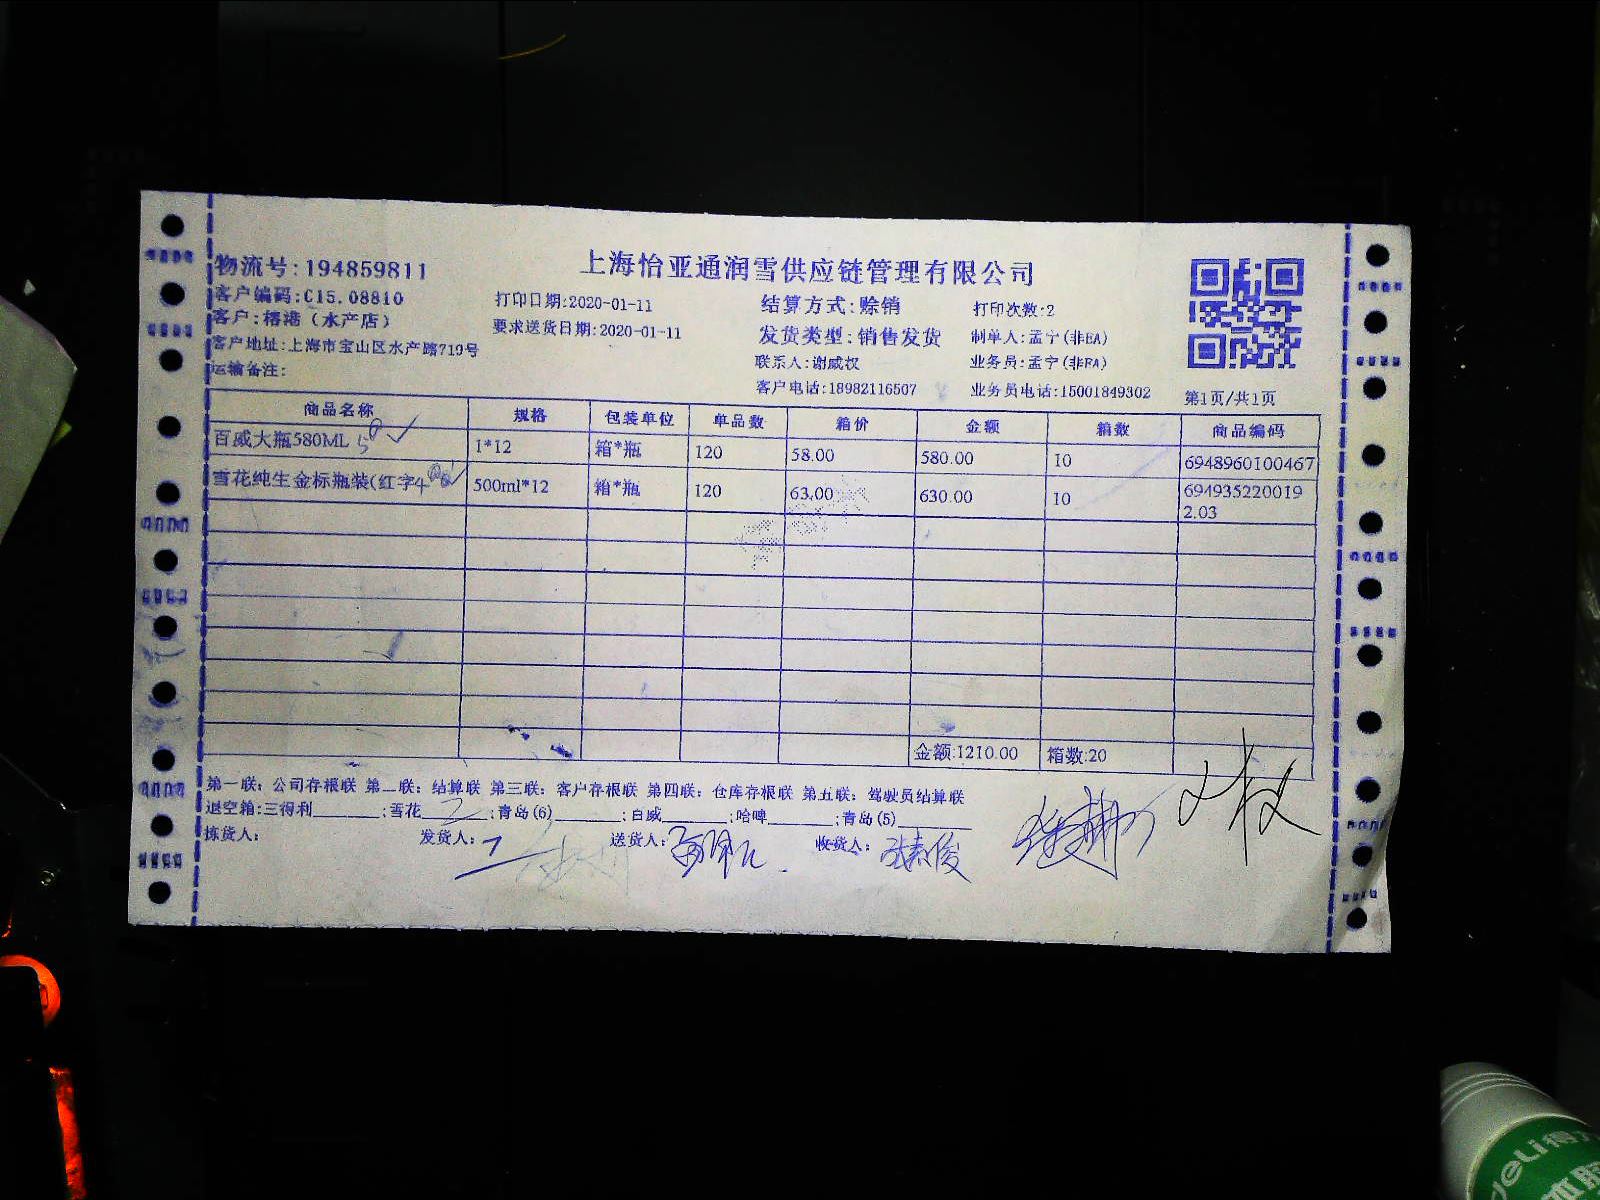 上海怡亚通润雪供应链管理有限公司
物流号:194859811
客户编码:C15.08810 打印日期:2020-01-11 结算方式:赊销 打印次数:2
客户:榕港（水产店） 要求送货日期:2020-01-11 发货类型:销售发货 制单人:孟宁(非EA)
客户地址:上海市宝山区水产路719号 联系人:谢威权 业务员:孟宁(非EA)
运输备注: 客户电话:18982116507 业务员电话:15001849302 第1页/共1页
商品名称 规格 包装单位 单品数 箱价 金额 箱数 商品编码
百威大瓶580ML 1*12 箱*瓶 120 58.00 580.00 10 6948960100467
雪花纯生金标瓶装(红字4 500ml*12 箱*瓶 120 63.00 630.00 10 694935220019
2.03
金额:1210.00 箱数:20
第一联：公司存根联 第二联：结算联 第三联：客户存根联 第四联：仓库存根联 第五联：驾驶员结算联
退空箱:三得利______;雪花______;青岛(6)______;百威______;哈啤______;青岛(5)______
拣货人: 发货人: 送货人: 收货人:
deli得力